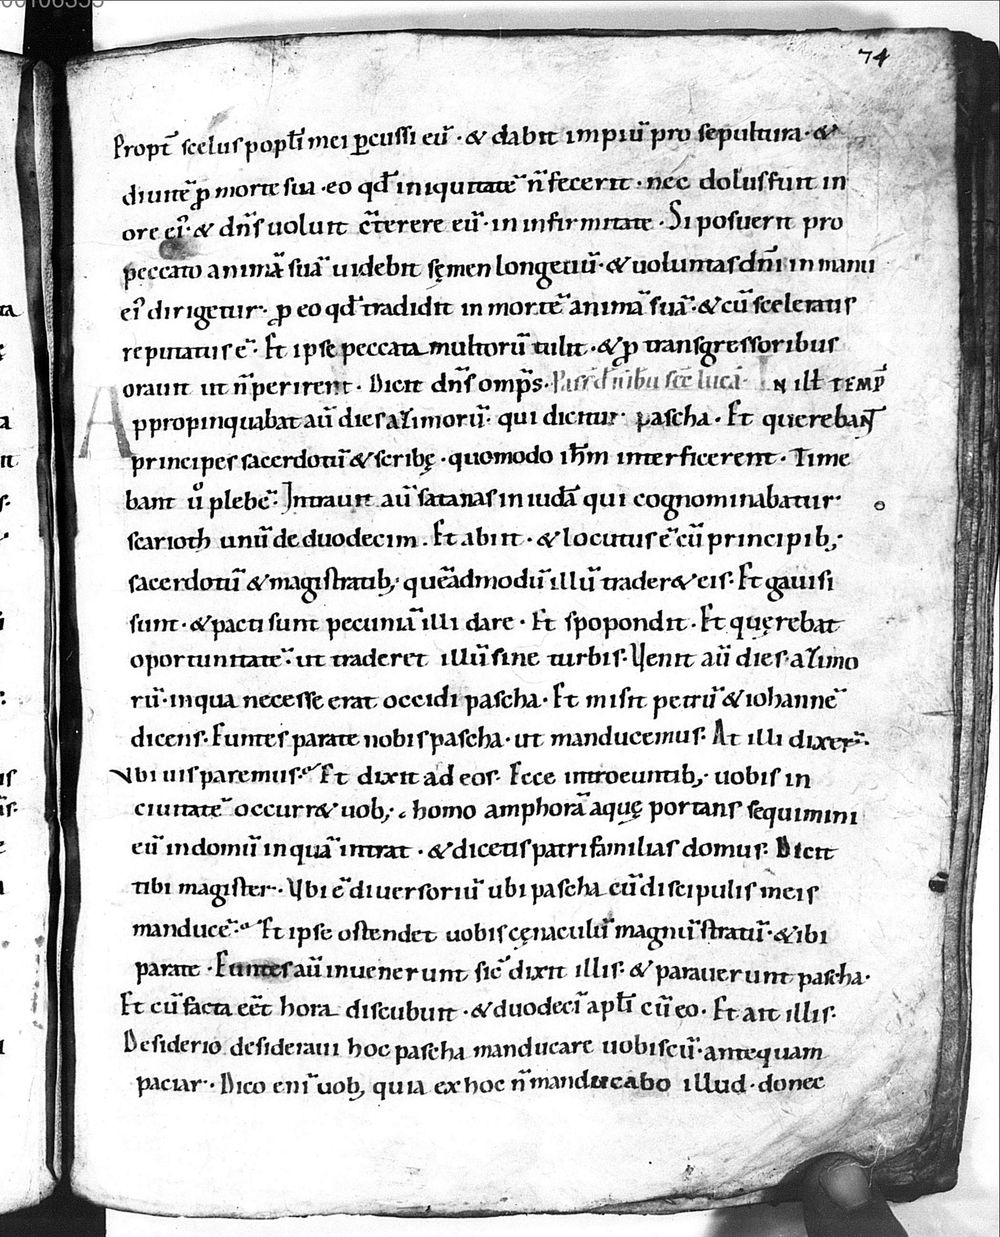 00106355
74
Propt̄ scelus popl̄i mei ꝑcussi eū · & dabit impiū pro sepultura · &
diuitē ꝓ morte sua · eo qd̄ iniquitatē n̄ fecerit · nec dolus fuit in
ore ei᾽ · & dn̄s uoluit c̄terere eū · in infirmitate · Si posuerit pro
peccato animā suā uidebit sęmen longeuū · & uoluntas dn̄i in manu
ei᾽ dirigetur · ꝓ eo qd̄ tradidit in mortē animā suā · & cū sceleratis
reputatus ē · Et ipse peccata multorū tulit · & ꝓ transgressoribus
orauit ut n̄ perirent · Dicit dn̄s omp̄s · Pass̄ d̄ni scd̄ lucā · IN ill̄ TEMP̄
Appropinquabat aū dies azimorū · qui dicitur pascha · Et querebant̄
principes sacerdotū & scribę · quomodo ih̄m interficerent · Time
bant u̇̄ plebē · Intrauit aū satanas in iudā qui cognominabatur ·
scarioth unū de duodecim · Et abiit · & locutus ē cū principib;
sacerdotū & magistratib; quēadmodū illū trader& eis · Et gauisi
sunt · & pacti sunt pecuniā illi dare · Et spopondit · Et quęrebat
oportunitatē · ut traderet illū sine turbis · Uenit aū dies · azimo
rū · in qua necesse erat occidi pascha · Et misit petrū & iohannē
dicens · Euntes parate nobis pascha · ut manducemus · At illi dixer̄ ·
Vbi uis paremus · Et dixit ad eos · Ecce introeuntib; uobis in
ciuitatē occurr& uob; homo amphorā aquę portans sequimini
eū in domū in quā intrat · & dicetis patrifamilias domus · Dicit
tibi magister · Vbi ē diuersoriū ubi pascha cū discipulis meis
manducē · Et ipse ostendet uobis cęnaculū magnū stratū · & ibi
parate · Euntes aū inuenerunt sic̄ dixit illis · & parauerunt pascha ·
Et cū facta eēt hora discubuit · & duodecī apl̄i cū eo · Et ait illis ·
Desiderio desideraui hoc pascha manducare uobiscū · antequam
paciar · Dico enī uob; quia ex hoc n̄ manducabo illud · donec